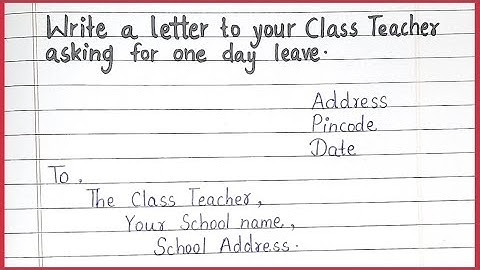 Write a letter to your Class Teacher
asking for one day leave.
Address
Pincode
Date
To,
The Class Teacher,
Your School name,
School Address.